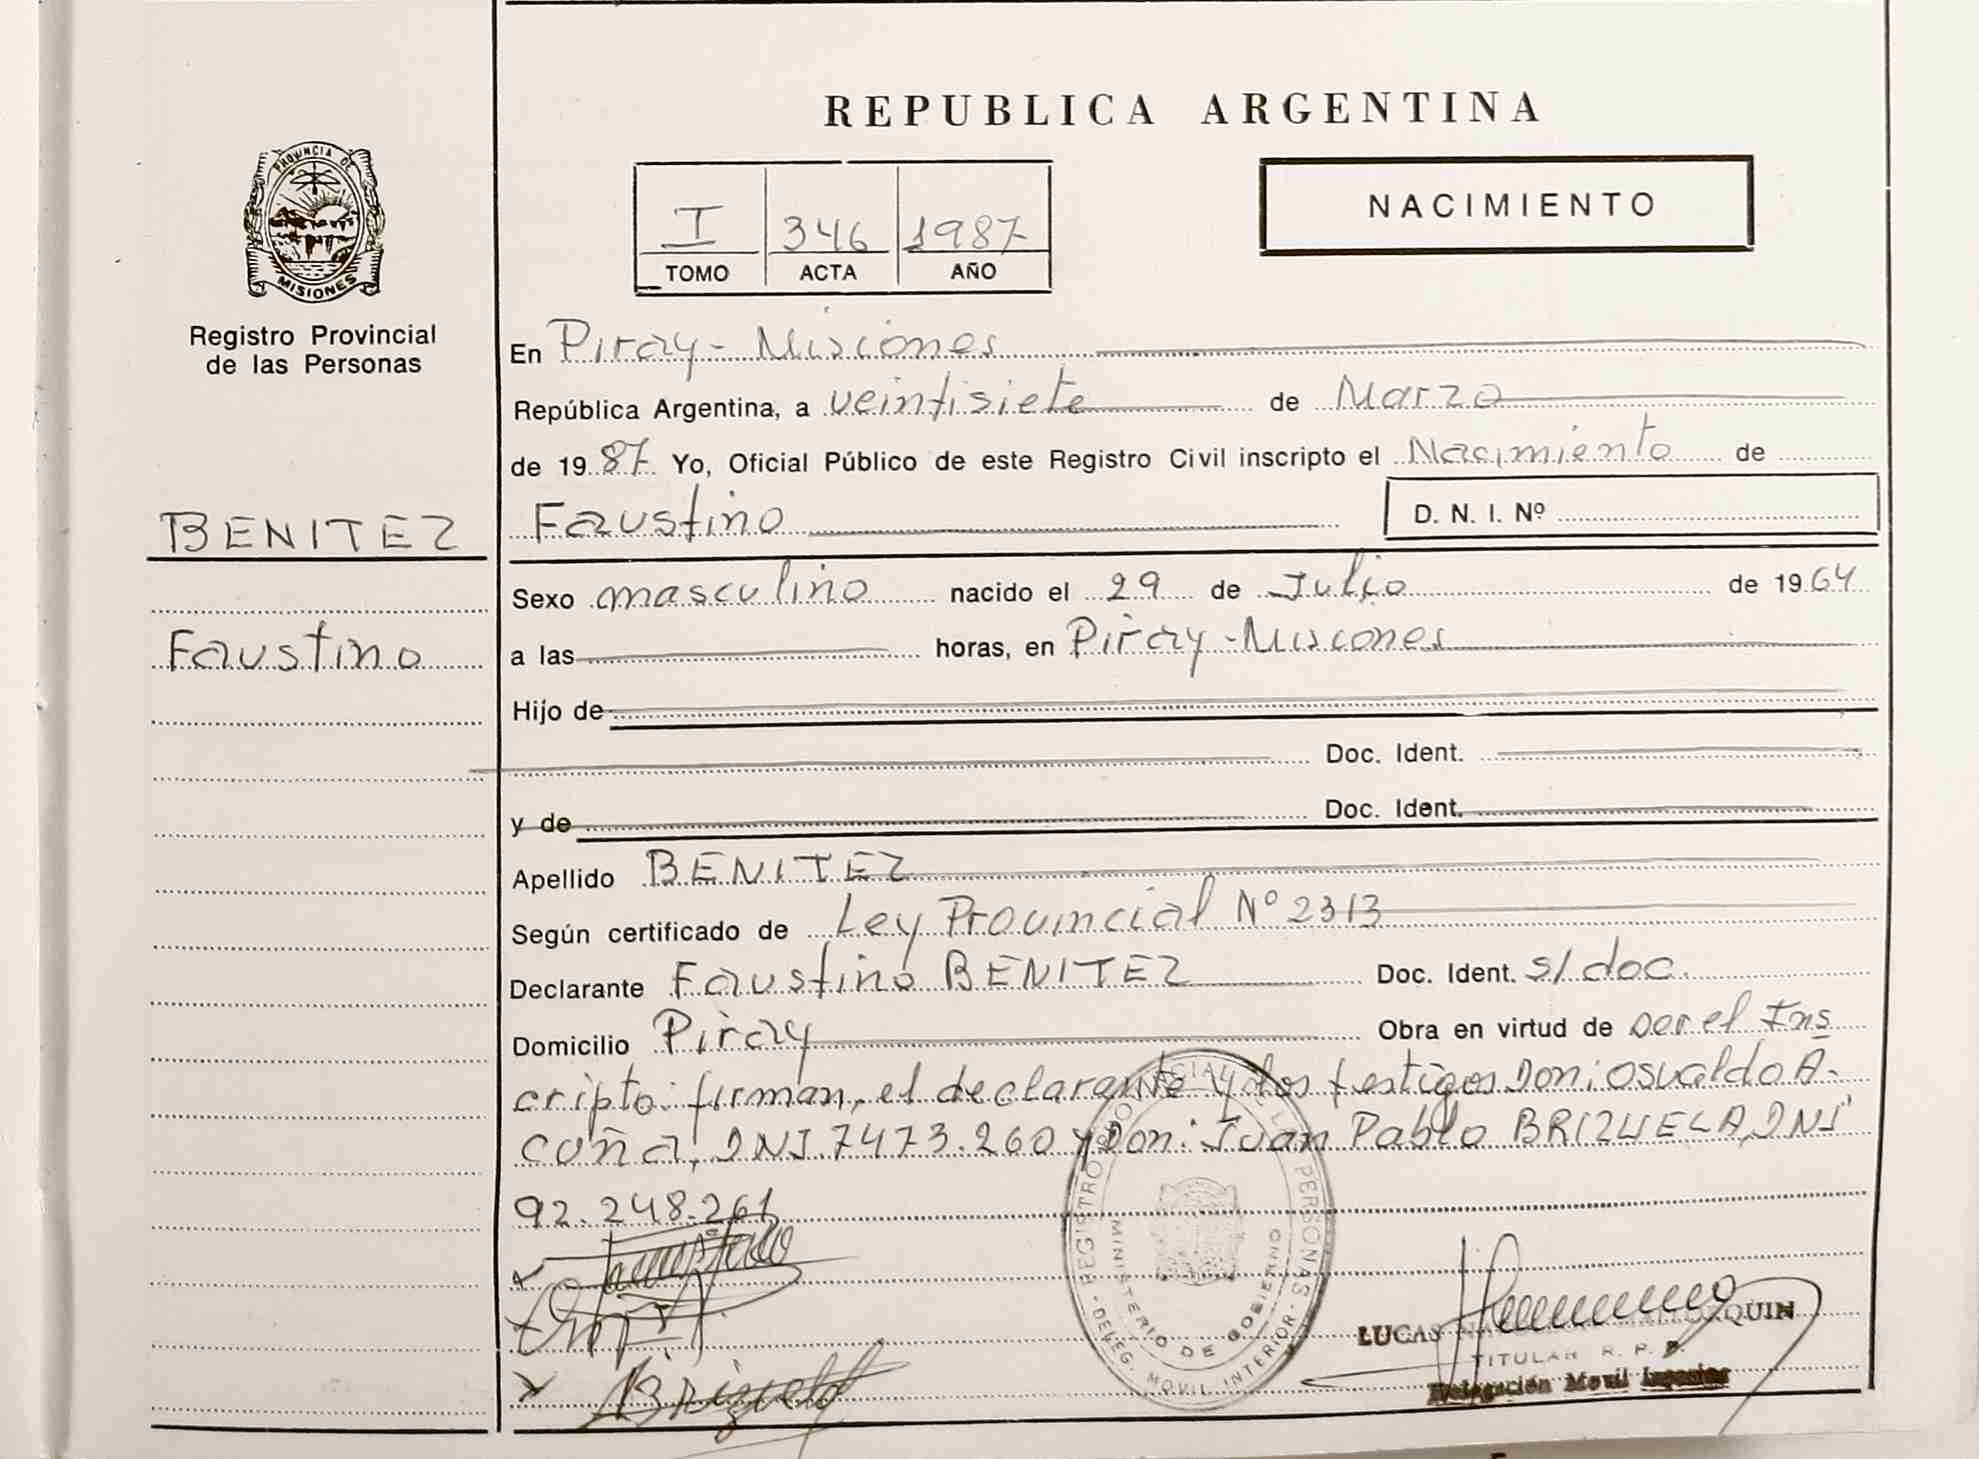 REPUBLICA ARGENTINA
PROVINCIA DE
MISIONES
Registro Provincial
de las Personas
I 346 1987
TOMO ACTA AÑO
NACIMIENTO
BENITEZ
Faustino
En Piray - Misiones
República Argentina, a veintisiete de Marzo
de 1987 Yo, Oficial Público de este Registro Civil inscripto el Nacimiento de
Faustino D. N. I. Nº
Sexo masculino nacido el 29 de Julio de 1964
a las horas, en Piray - Misiones
Hijo de
Doc. Ident.
y de Doc. Ident.
Apellido BENITEZ
Según certificado de Ley Provincial Nº 2313
Declarante Faustino BENITEZ Doc. Ident. s/doc.
Domicilio Piray Obra en virtud de ser el Ins
cripto: firman, el declarante y los testigos Don: Osvaldo A.
CUÑA, DNI. 7473.260 y Don: Juan Pablo BRIZUELA, DNI
92.248.261
Faustino
Brizuela
REGISTRO PROVINCIAL DE LAS PERSONAS
MINISTERIO DE GOBIERNO
DELEG. MOVIL INTERIOR
LUCAS QUIN
TITULAR R. P. P.
Delegación Movil